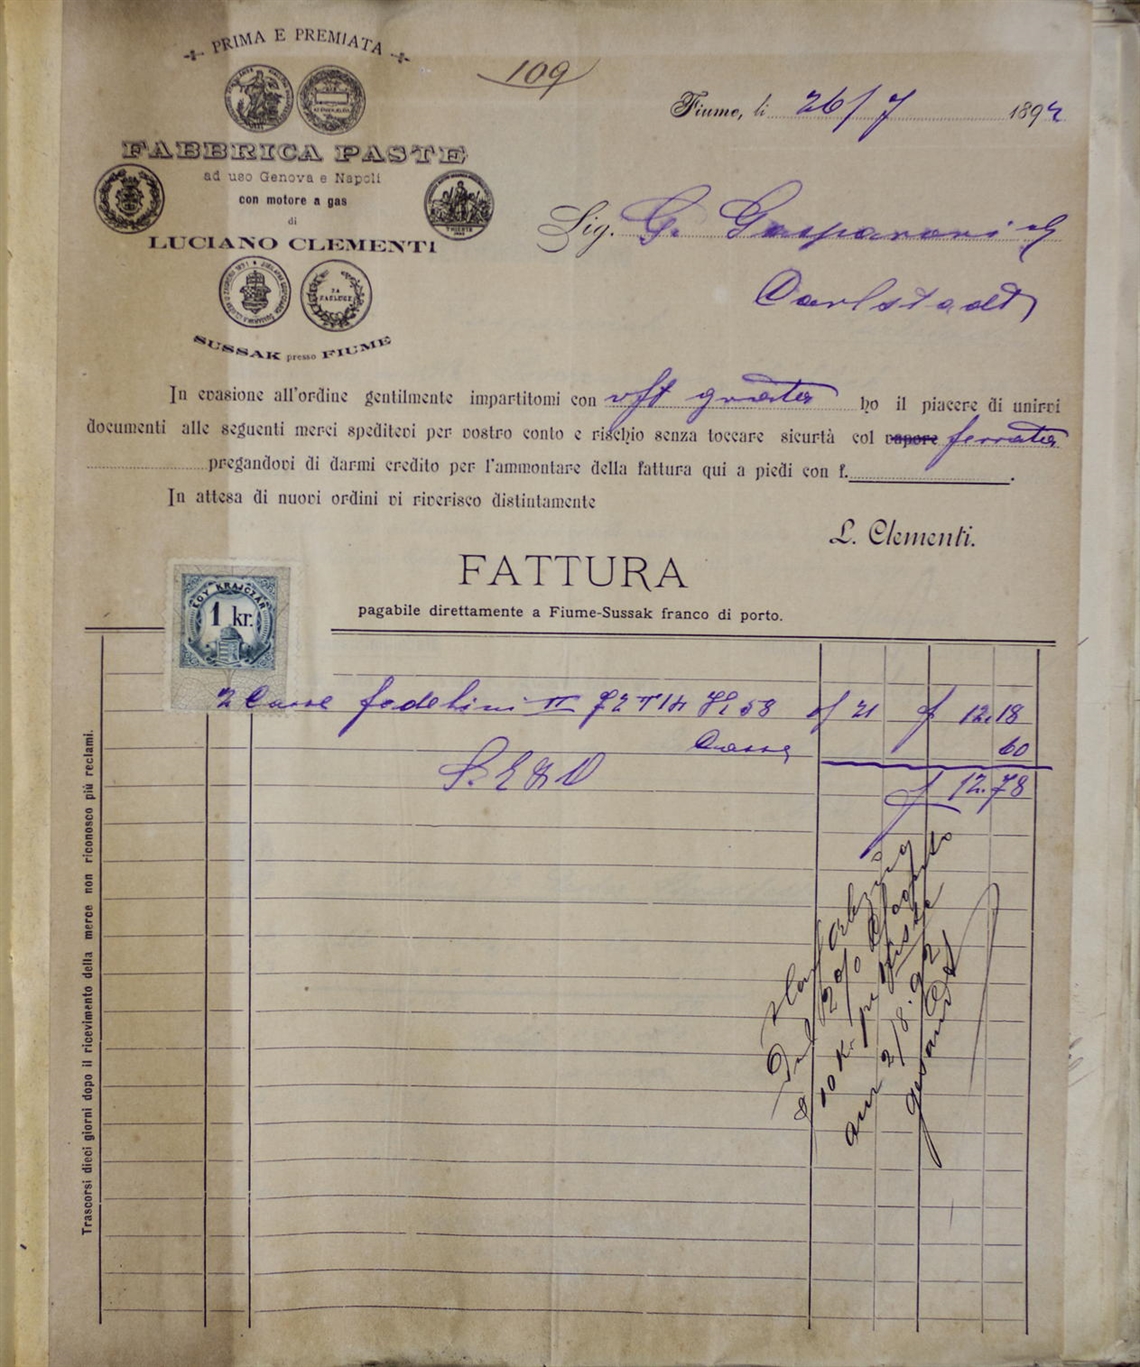 109
PRIMA E PREMIATA
FABBRICA PASTE
ad uso Genova e Napoli
con motore a gas
di
LUCIANO CLEMENTI
SUSSAK presso FIUME
Fiume, li 26/7 1892
Sig. G. Gasparoni
Carlstadt
In evasione all'ordine gentilmente impartitomi con ho il piacere di unirvi
documenti alle seguenti merci speditevi per vostro conto e rischio senza toccare sicurtà col vapore ferrata
pregandovi di darmi credito per l'ammontare della fattura qui a piedi con f.
In attesa di nuovi ordini vi riverisco distintamente
L. Clementi.
FATTURA
pagabile direttamente a Fiume-Sussak franco di porto.
EGY KRAJCZÁR
1 kr.
2 Casse fedelini II 58 f 21 f 12.18
Casse 60
f 12.78
2% 
10 Kr. per Kiste
am 2/8. 92
gesandt
Trascorsi dieci giorni dopo il ricevimento della merce non riconosco più reclami.